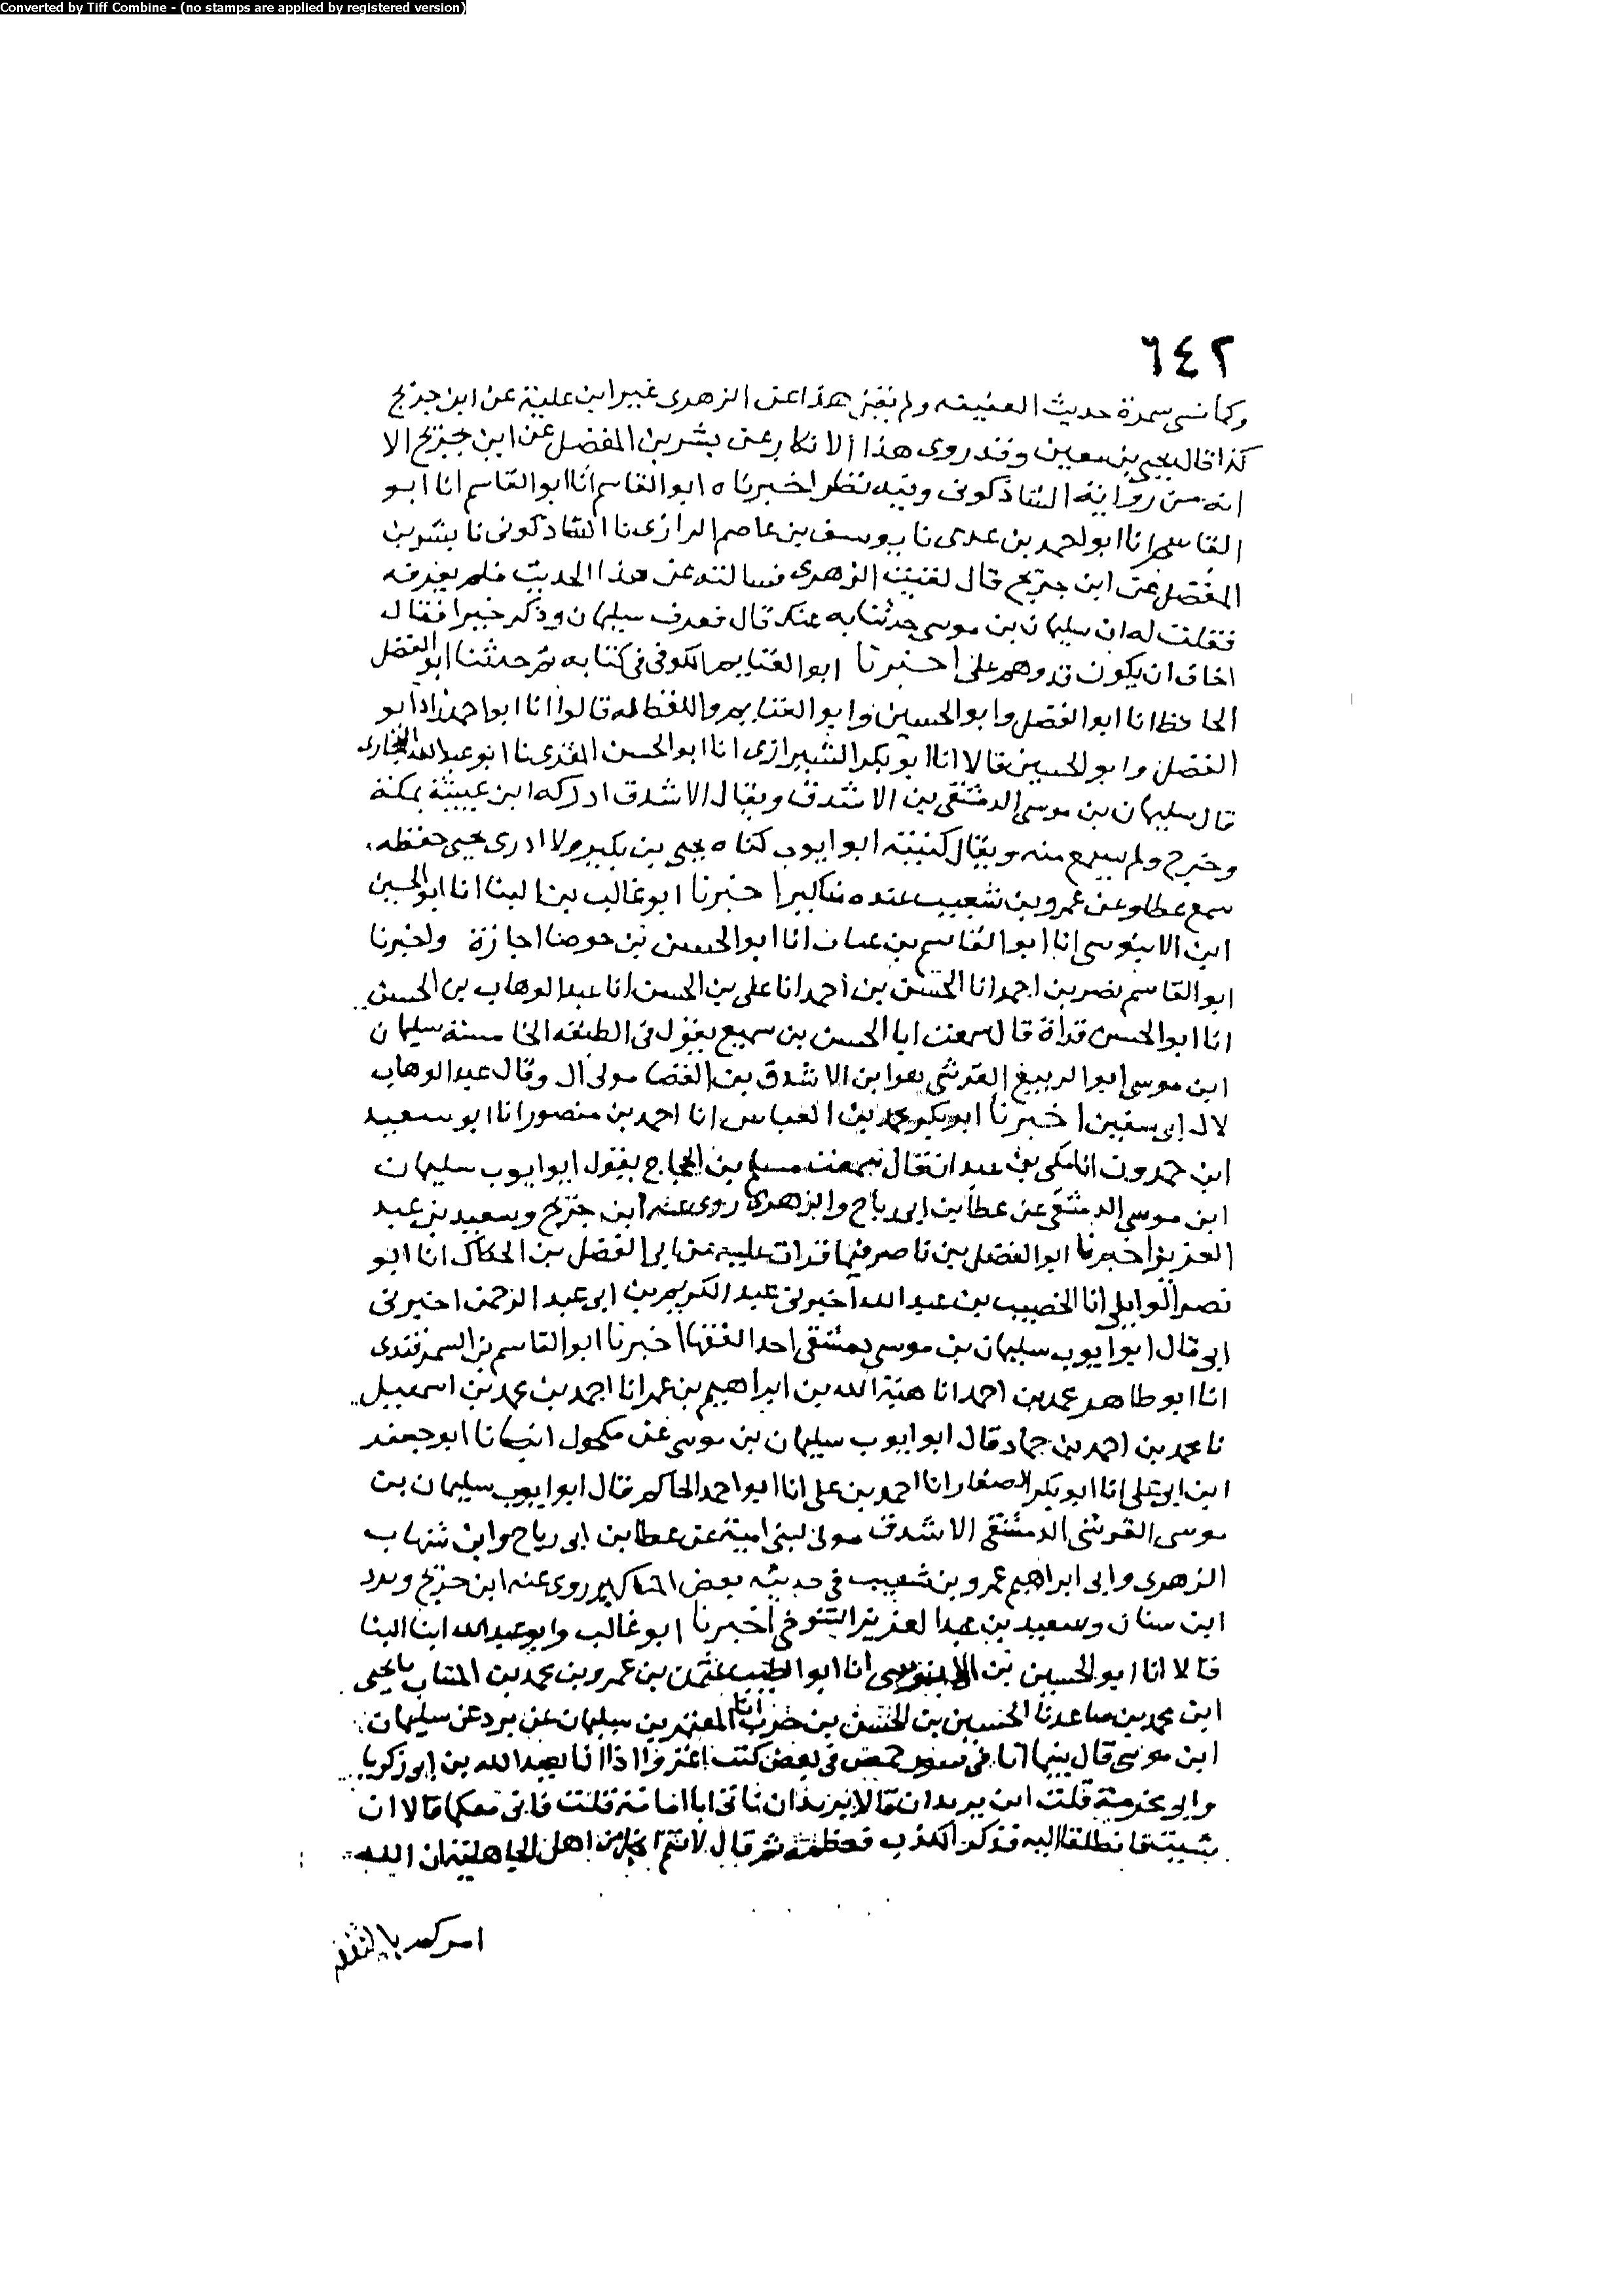 Converted by Tiff Combine - (no stamps are applied by registered version)
٦٤٢
وكما نسى سمرة حديث العقيقه ولم يقل هذا عن الزهرى غير ابن علية عن ابن جريج
كذا قال يحيى بن معين وقد روى هذا الانكار عن بشر بن المفضل عن ابن جريج الا
انه من رواية الشاذكونى وفيه نظر اخبرناه ابو القاسم انا ابو القاسم انا ابو
القاسم انا ابو احمد بن عدى نا يوسف بن عاصم الرازى نا الشاذكونى نا بشر بن
المفضل عن ابن جريج قال لقيت الزهرى فسالته عن هذا الحديث فلم يعرفه
فقلت له ان سليمان بن موسى حدثنا به عنك قال فعرف سليمان وذكر خيرا فقال
اخاف ان يكون قد وهم على اخبرنا ابو الغنايم الكوفى فى كتابه ثم حدثنا ابو الفضل
الحافظ انا ابو الفضل وابو الحسين وابو الغنايم واللفظ له قالوا انا ابو احمد زاد ابو
الفضل وابو الحسين قالا انا ابو بكر الشيرازى انا ابو الحسن المقرى نا ابو عبد الله البخارى
قال سليمان بن موسى الدمشقى بن الاشدق ويقال الاشدق ادركه ابن عيينة بمكة
وخرج ولم يسمع منه ويقال كنيته ابو ايوب كناه يحيى بن بكير ولا ادرى يحيى حفظه
سمع عطا وعن عمرو بن شعيب عنده مناكير اخبرنا ابو غالب بن البنا انا ابو الحسين
ابن الابنوسى انا ابو القاسم بن عتاب انا ابو الحسن بن جوصا اجازة واخبرنا
ابو القاسم نصر بن احمد انا الحسن بن احمد انا على بن الحسن انا عبد الوهاب بن الحسن
انا ابو الحسن قراة قال سمعت ابا الحسن بن سميع يقول فى الطبقه الخامسة سليمان
ابن موسى ابو الربيع القرشى هو ابن الاشدق مولى ال وقال عبد الوهاب
لال ابى سفين اخبرنا ابو بكر محمد بن العباس انا احمد بن منصور انا ابو سعيد
ابن حمدون انا مكى بن عبدان قال سمعت مسلم بن الحجاج يقول ابو ايوب سليمان
ابن موسى الدمشقى عن عطا بن ابى رباح والزهرى روى عنه ابن جريج وسعيد بن عبد
العزيز اخبرنا ابو الفضل بن ناصر فيما قرات عليه عن ابى الفضل بن الحكاك انا ابو
نصر الوايلى انا الخصيب بن عبد الله اخبرنى عبد الكريم بن ابى عبد الرحمن اخبرنى
ابى قال ابو ايوب سليمان بن موسى دمشقى احد الفقها اخبرنا ابو القاسم بن السمرقندى
انا ابو طاهر محمد بن احمد انا هبة الله بن ابراهيم بن عمر انا احمد بن محمد بن اسمعيل
نا محمد بن احمد بن حماد قال ابو ايوب سليمان بن موسى عن مكحول انبانا ابو جعفر
ابن ابى على انا ابو بكر الصفار انا احمد بن على انا ابو احمد الحاكم قال ابو ايوب سليمان بن
موسى القرشى الدمشقى الاشدق مولى لبنى امية عن عطا بن ابى رباح وابن شهاب
الزهرى وابى ابراهيم عمرو بن شعيب فى حديثه بعض المناكير روى عنه ابن جريج وبرد
ابن سنان وسعيد بن عبد العزيز التنوخى اخبرنا ابو غالب وابو عبد الله ابنا البنا
قالا انا ابو الحسين بن الابنوسى انا ابو الطيب عثمن بن عمرو بن محمد بن المنتاب نا يحيى
ابن محمد بن صاعد نا الحسين بن الحسن بن حرب انا المعتمر بن سليمان عن برد عن سليمان
ابن موسى قال بينما انا فى سور حمص فى بعض اذا انا بعبد الله بن ابى زكريا
وابو مخرمة قلت اين يريدان قالا نريد ان ناتى ابا امامة قلت فاتى معكما قالا ان
شيت فانطلقنا اليه فذكر الكذب فعظمه ثم قال لانتم اهل الجاهلية ان الله
امركم بالنفقة